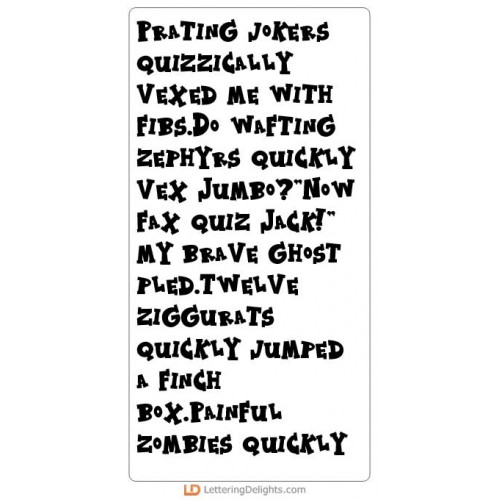 Prating jokers
quizzically
vexed me with
fibs.Do wafting
zephyrs quickly
vex Jumbo?"Now
fax quiz Jack!"
my brave ghost
pled.Twelve
ziggurats
quickly jumped
a finch
box.Painful
zombies quickly
LD LetteringDelights.com